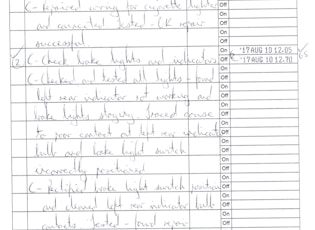 C - Repaired wiring for cigarette lighter Off
and connected. Tested - OK repair On
successful. Off
On '17 AUG 10 12:05
2 C - Check brake lights and indicators Off '17 AUG 10 12:70
C - Checked and tested all lights - found On
Off
left rear indicator not working and On
brake lights staying. Traced cause Off
On
to poor contact at left rear indicator Off
bulb and brake light switch On
Off
incorrectly positioned On
C - Rectified brake light switch position Off
On
and cleaned left rear indicator bulb Off
contacts. Tested - found repair On
Off